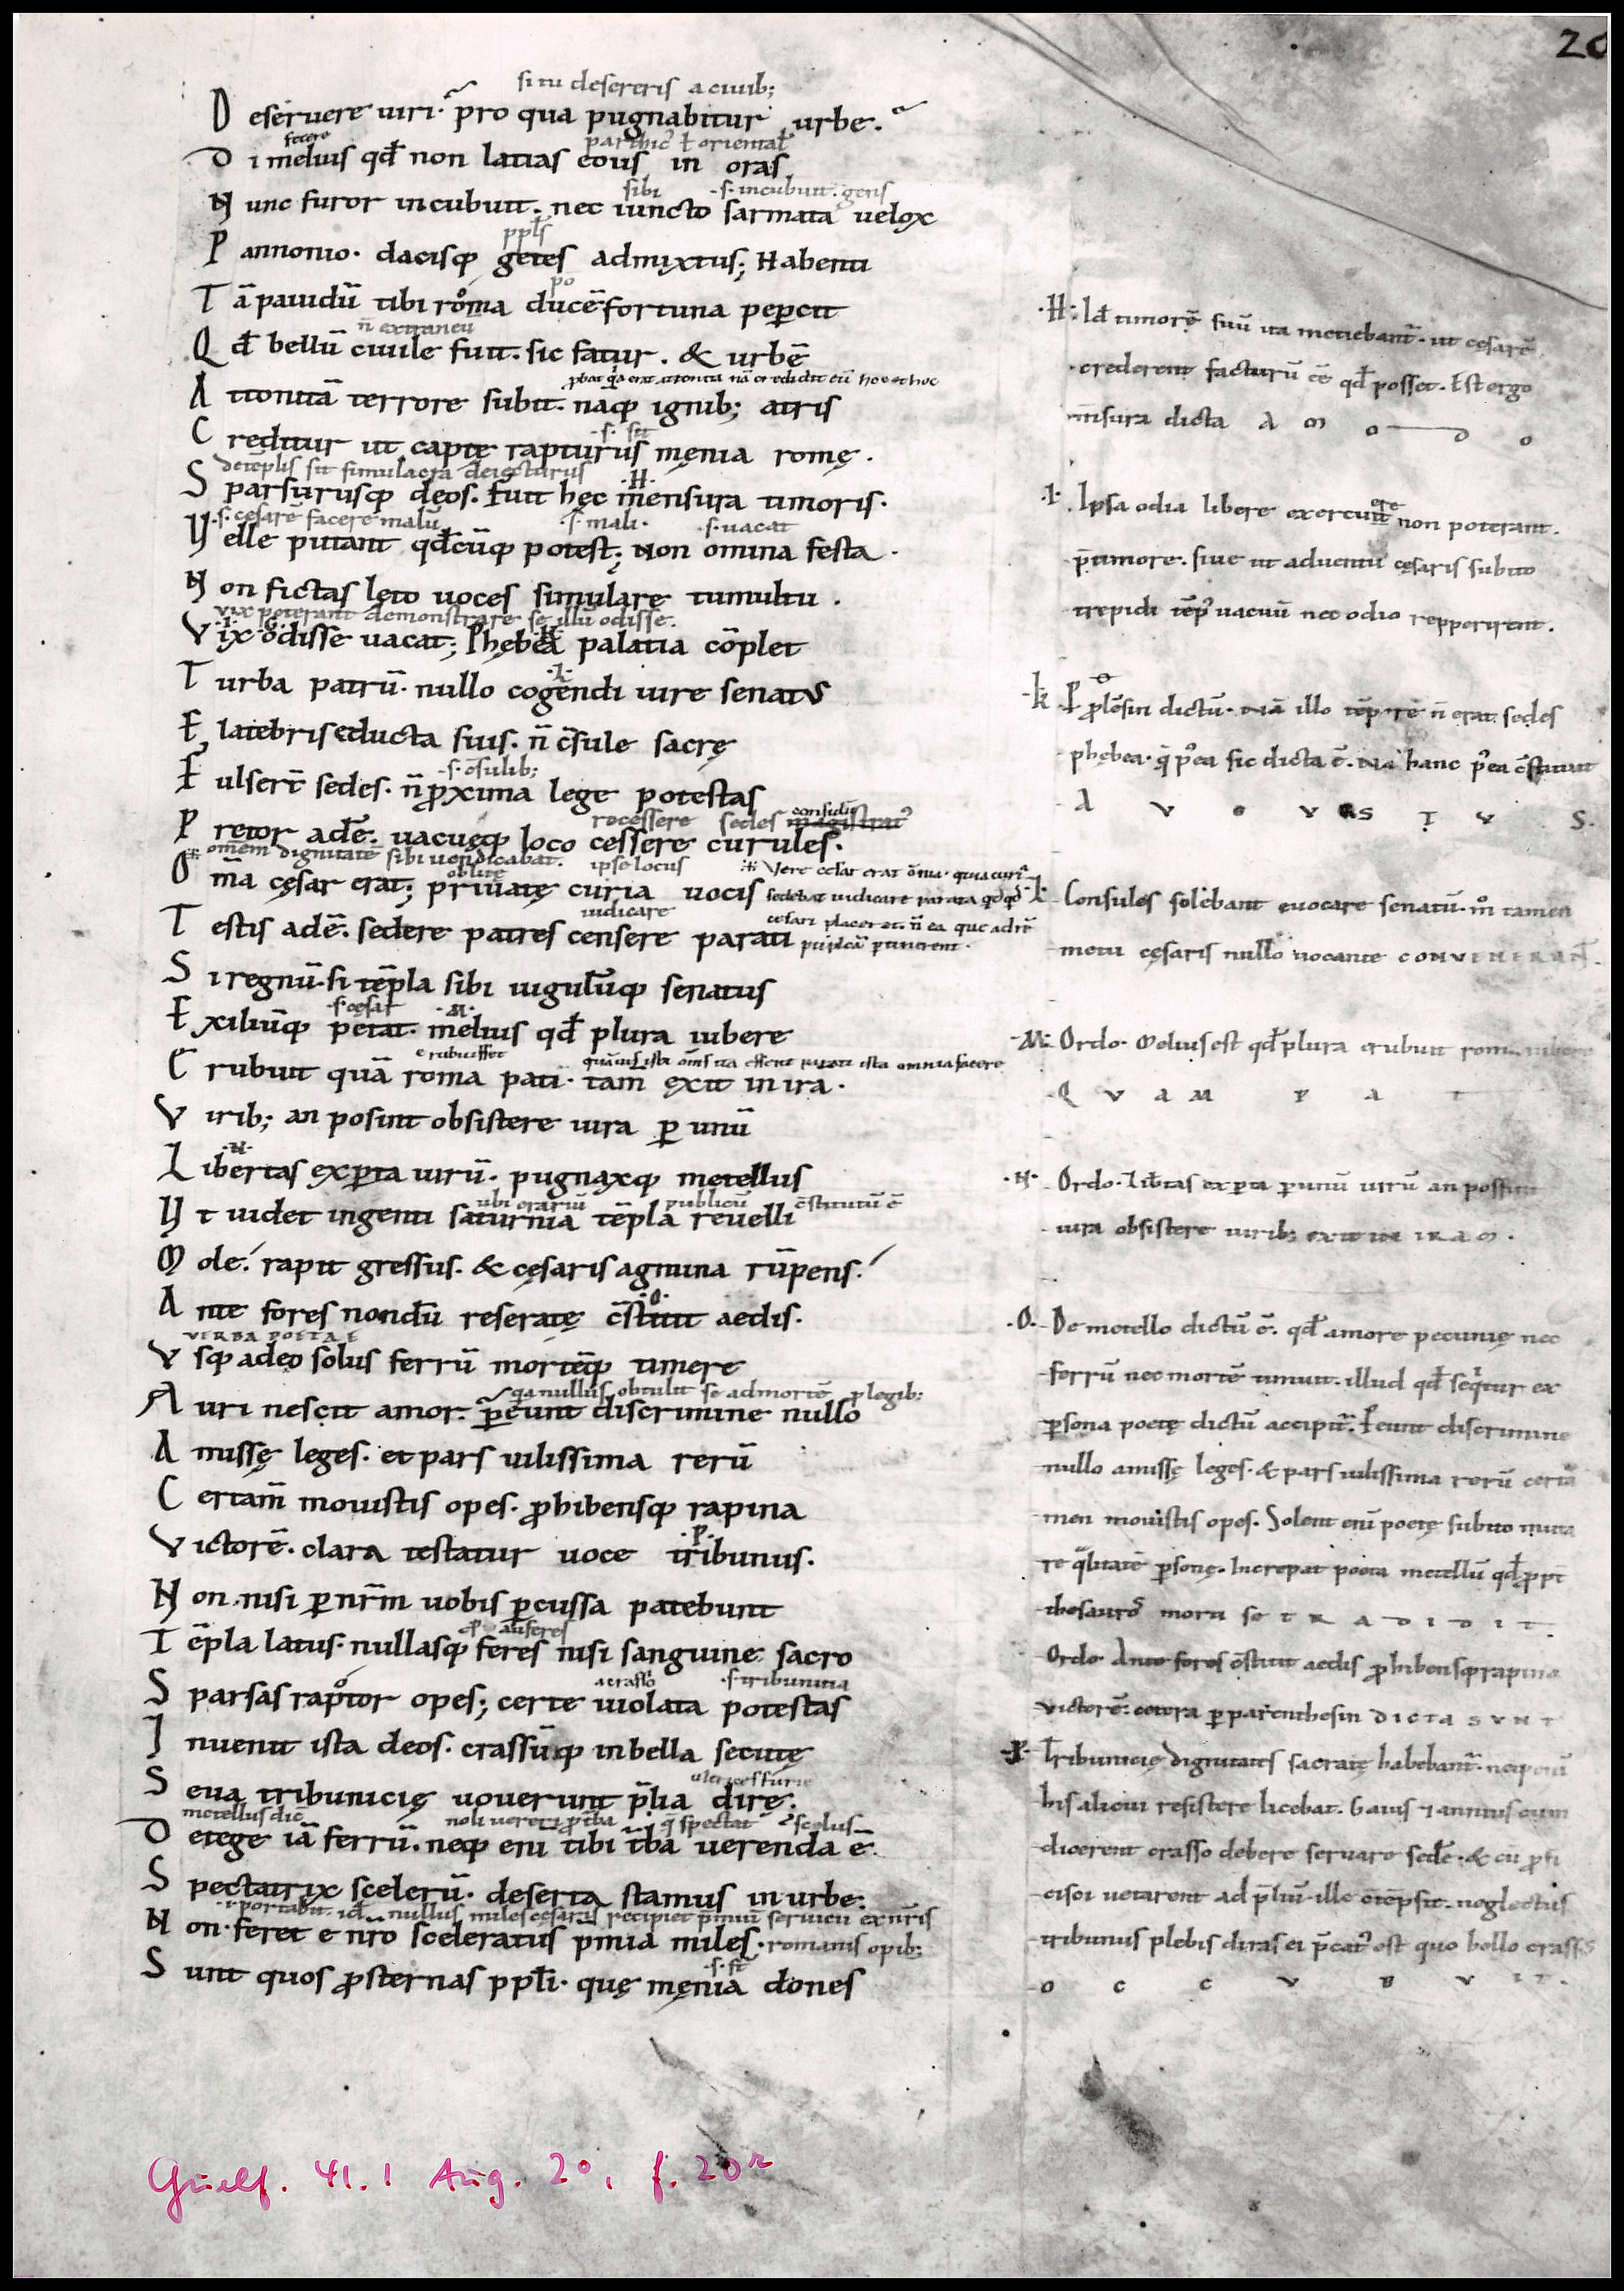 20
si tu desereris a ciuib;
D eseruere uiri. pro qua pugnabitur urbe.
fecere parthic' ł oriental'
D i melius qđ non latias eous in oras
sibi .s. incubuit. gens
N unc furor incubuit. nec iuncto sarmata uelox
pplˢ
P annonio. dacisq; getes admixtus; Habenti
po
T ā pauidū tibi roma ducē fortuna pepercit
n̄ extraneū
Q đ bellū ciuile fuit. sic fatur. & urbē
A ttonitā terrore subit. naq; ignib; atris
.s. sit
C reditur ut captę rapturus męnia romę.
detēplis sit simulacra deiecturus .H.
S parsurusq; deos. fuit hęc mensura timoris.
.s. cęsarē facere malū .s. mali. .s. uacat
V elle putant qđcūq; potest; Non omina festa.
N on fictas lęto uoces simulare tumultu.
uix poterant demonstrare se illū odisse.
.I. .K.
V ix odisse uacat; Phębea palatia cōplet
.L.
T urba patrū. nullo cogendi iure senatus
E latebris educta suis. n̄ c̄sule sacrę
.s. c̄sulib;
F ulserē sedes. n̄ p̱xima lege potestas
recessere sedes consulū magistrat'
P retor adē. uacuęq; loco cessere curules.
omēm dignitatē sibi uendicabat. ipse locus
O mā cęsar erat; priuatę curia uocis
iudicare
T estis adē. sedere patres censere parati
S i regnū. si tēpla sibi iugulūq; senatus
.s. cęsar .M.
E xiliūq; petat. melius qđ plura iubere
erubuisset
E rubuit quā roma pati. tam exit in ira.
V irib; an posint obsistere iura p̱ unū
.N.
L ibertas exp̱ta uirū. pugnaxq; metellus
ubi erariū publicū c̄stitutū ē
V t uidet ingenti saturnia tēpla reuelli
M ole. rapit gressus. & cęsaris agmina rūpens.
.O.
A nte fores nondū reseratę c̄stitit aedis.
VERBA POETAE
V sq; adeo solus ferrū mortēq; timere
qa nullus obtulit se admortē p̱ legib;
A uri nescit amor. p̱eunt discrimine nullo
A missę leges. et pars uilissima rerū
C ertam̄ mouistis opes. p̱hibensq; rapina
.P.
V ictorē. clara testatur uoce tribunus.
N on nisi p̱ nr̄m uobis p̱cussa patebunt
auferes
T ēpla latus. nullasq; feres nisi sanguine sacro
a crasso .s. tribunitia
S parsas raptor opes; certe uiolata potestas
I nuenit ista deos. crassūq; in bella secutę
S eua tribunicię uouerunt p̄lia dirę.
metellus dic̄ scelus
D etege iā ferrū. neq; eni tibi t̄ba uerenda ē.
S pectatrix scelerū. deserta stamus in urbe.
.i. portabit. id. nullus miles cęsaris recipiet p̄miū seruicii ex nr̄is
N on feret e nr̄o sceleratus p̄mia miles. romanis opib;
.s. st̄
S unt quos p̱sternas ppl̄i. quę męnia dones
.H. Id timorē suū ita metiebant̄. ut cęsarē
crederent facturū eē qđ posset. Est ergo
m̄sura dicta A M O D O
.I. Ipsa odia libere exercere non poterant.
p̄ timore. siue ut aduentu cęsaris subito
trepidi tēp' uacuū nec odio repperirent.
k P p̱lēsin dictū. Nā illo tēpore n̄ erat sedes
phębea. q̱ p'ea sic dicta ē. Nā hanc p'ea c̄stituit
A V G V S T V S.
L Consules solebant euocare senatū. m̊ tamen
metu cęsaris nullo uocante CONVENERANT.
.M. Ordo. Melius est qđ plura erubuit roma iubere
Q V A M P A T
.N. Ordo. Libtas exp̱ta p̱ unū uirū an possint
iura obsistere uirib; exit in IRAM.
.O. De metello dictū ē. qđ amore pecunię nec
ferrū nec mortē timuit. illud qđ seq̄tur ex
p̱sona poetę dictū accipit̄. P̱eunt discrimine
nullo amissę leges. & pars uilissima rerū certa
men mouistis opes. Solent enī poetę subito muta
re q̄litatē p̱sonę. Increpat poeta metellū qđ p̱pt̄
thesauros morti se T R A D I D I T.
Ordo Ante fores c̄stitit aedis p̱hibensq; rapina
victorē. cetera p̱ parenthesin DICTA SVNT
.P. Tribunicię dignitates sacratę habebant̄. neq; enī
his alicui resistere licebat. Gaius & annius cum
dicerent crasso debere seruare
tribunus plebis diras ei p̄cat' est quo bello crassus
O C C V B V I T.
Guelf. 41.1 Aug. 2°, f. 20r